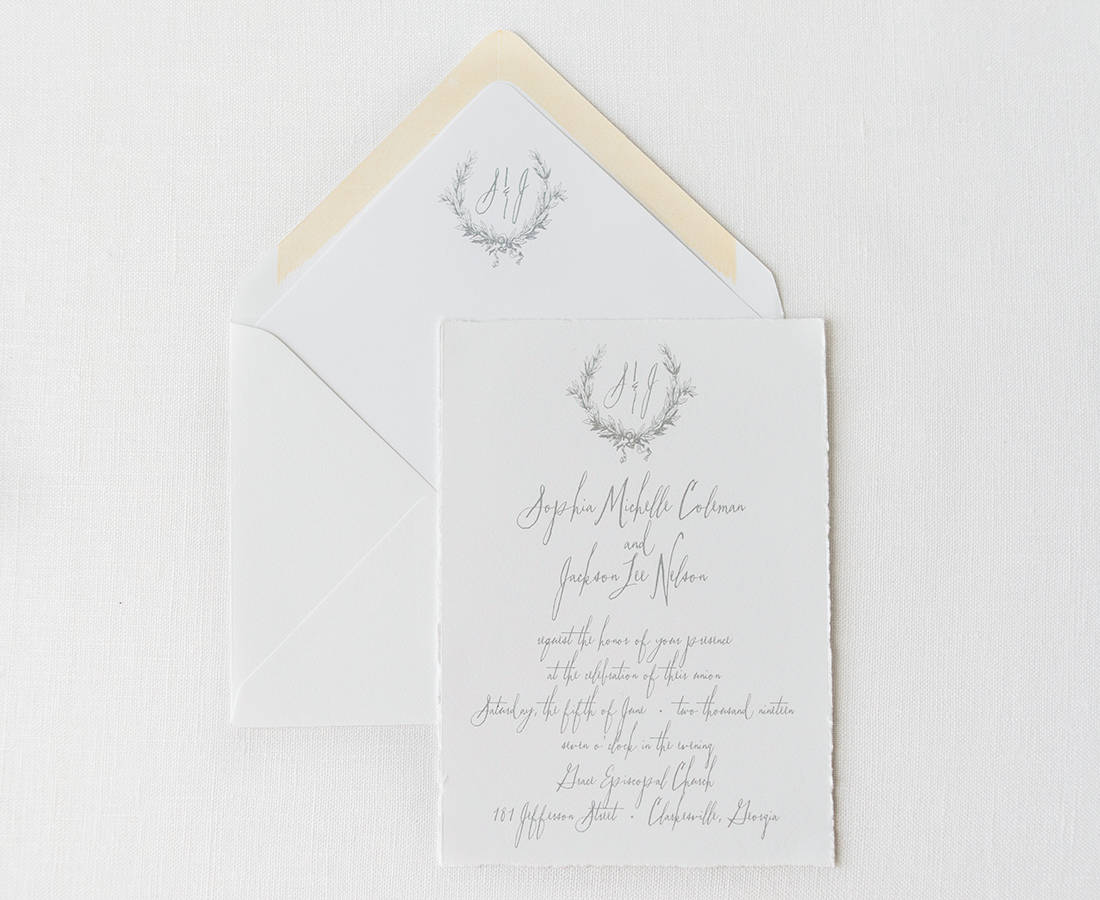 S & J
S & J
Sophia Michelle Coleman
and
Jackson Lee Nelson
request the honor of your presence
at the celebration of their union
Saturday, the fifth of June • two thousand nineteen
seven o'clock in the evening
Grace Episcopal Church
181 Jefferson Street • Clarkesville, Georgia